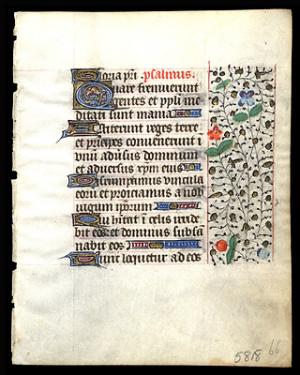 Gloria pri. psalmus.
Quare fremuerunt
gentes et ppli me
ditati sunt inania
Astiterunt reges terre
et principes convenerunt i
unu adusus dominum
et adversus xpm eius
Dirumpamus vincula
eoru et proiciamus a nob
iugum ipsorum
Qui habitat i celis irride
bit eos et dominus subsa
nabit eos
Tunc loquetur ad eos
5818 66